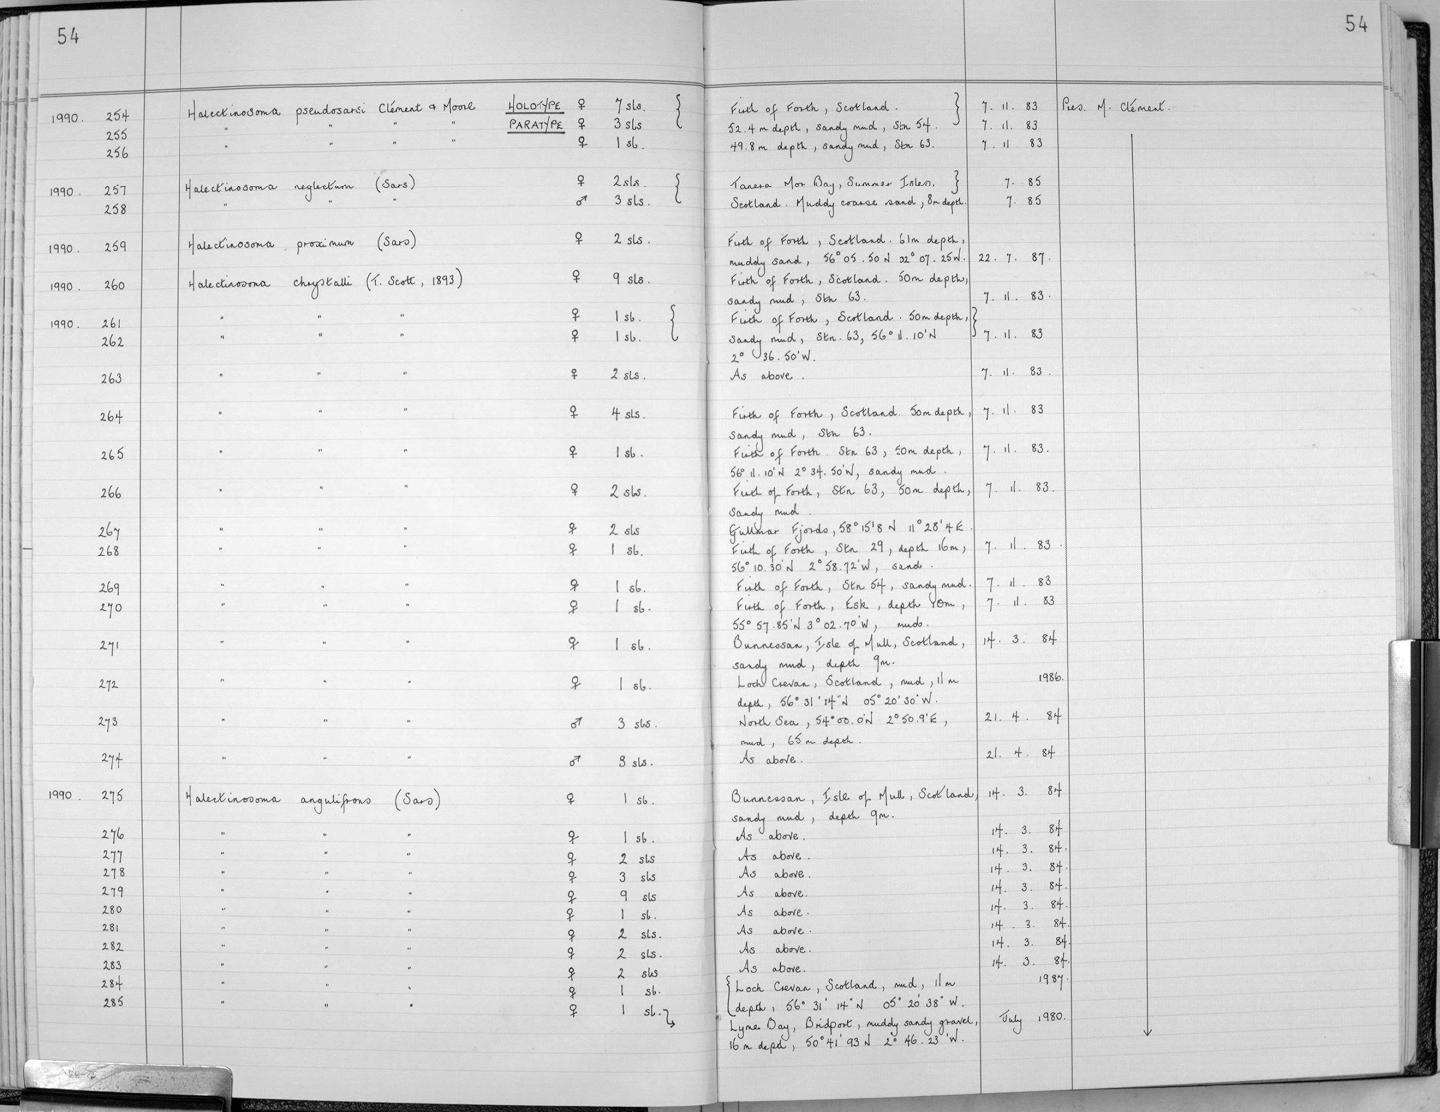 54
54
1990. 254 Halectinosoma pseudosarsi Clément & Moore HOLOTYPE ♀ 7 sls. { Firth of Forth, Scotland. } 7. 11. 83 Pres. M. Clément.
255 " " " " PARATYPE ♀ 3 sls 52.4 m depth, sandy mud, Stn 54. 7. 11. 83
256 " " " " ♀ 1 sl. 49.8 m depth, sandy mud, Stn 63. 7. 11 83
1990. 257 Halectinosoma neglectum (Sars) ♀ 2 sls. { Tanera Mor Bay, Summer Isles. } 7. 85
258 " " " ♂ 3 sls. Scotland. Muddy coarse sand, 8m depth. 7. 85
1990. 259 Halectinosoma proximum (Sars) ♀ 2 sls. Firth of Forth, Scotland. 61m depth,
muddy sand, 56° 05. 50 N 02° 07. 25W. 22. 7. 87.
1990. 260 Halectinosoma chrystalli (T. Scott, 1893) ♀ 9 sls. Firth of Forth, Scotland. 50m depth,
sandy mud, Stn 63. 7. 11. 83.
1990. 261 " " " ♀ 1 sl. { Firth of Forth, Scotland. 50m depth, }
262 " " " ♀ 1 sl. sandy mud, Stn. 63, 56° 11. 10'N 7. 11. 83
2° 36. 50'W.
263 " " " ♀ 2 sls. As above. 7. 11. 83.
264 " " " ♀ 4 sls. Firth of Forth, Scotland. 50m depth, 7. 11. 83
sandy mud, Stn 63.
265 " " " ♀ 1 sl. Firth of Forth. Stn 63, 50m depth, 7. 11. 83.
56° 11. 10'N 2° 34. 50'W, sandy mud.
266 " " " ♀ 2 sls. Firth of Forth, Stn 63, 50m depth, 7. 11. 83.
sandy mud.
267 " " " ♀ 2 sls Gullmar Fjords, 58° 15'8 N 11° 28' 4 E.
268 " " " ♀ 1 sl. Firth of Forth, Stn 29, depth 16m, 7. 11. 83.
56° 10. 30'N 2° 58. 72'W, sand.
269 " " " ♀ 1 sl. Firth of Forth, Stn 54, sandy mud. 7. 11. 83
270 " " " ♀ 1 sl. Firth of Forth, Esk, depth 10m, 7. 11. 83
55° 57. 85'N 3° 02. 70'W, mud.
271 " " " ♀ 1 sl. Bunnessan, Isle of Mull, Scotland, 14. 3. 84
sandy mud, depth 9m.
272 " " " ♀ 1 sl. Loch Crevan, Scotland, mud, 11 m 1986.
depth, 56° 31' 14"N 05° 20' 30" W.
273 " " " ♂ 3 sls. North Sea, 54° 00. 0'N 2° 50. 9'E, 21. 4. 84
mud, 65 m depth.
274 " " " ♂ 3 sls. As above. 21. 4. 84
1990. 275 Halectinosoma angulifrons (Sars) ♀ 1 sl. Bunnessan, Isle of Mull, Scotland, 14. 3. 84
sandy mud, depth 9m.
276 " " " ♀ 1 sl. As above. 14. 3. 84
277 " " " ♀ 2 sls As above. 14. 3. 84.
278 " " " ♀ 3 sls As above. 14. 3. 84.
279 " " " ♀ 9 sls As above. 14. 3. 84.
280 " " " ♀ 1 sl. As above. 14. 3. 84.
281 " " " ♀ 2 sls. As above. 14. 3. 84.
282 " " " ♀ 2 sls. As above. 14. 3. 84.
283 " " " ♀ 2 sls As above. 14. 3. 84.
284 " " " ♀ 1 sl. { Loch Crevan, Scotland, mud, 11 m 1987.
depth, 56° 31' 14" N 05° 20' 38" W.
285 " " " ♀ 1 sl. Lyme Bay, Bridport, muddy sandy gravel, July 1980.
16 m depth, 50° 41' 93 N 2° 46. 23 'W.